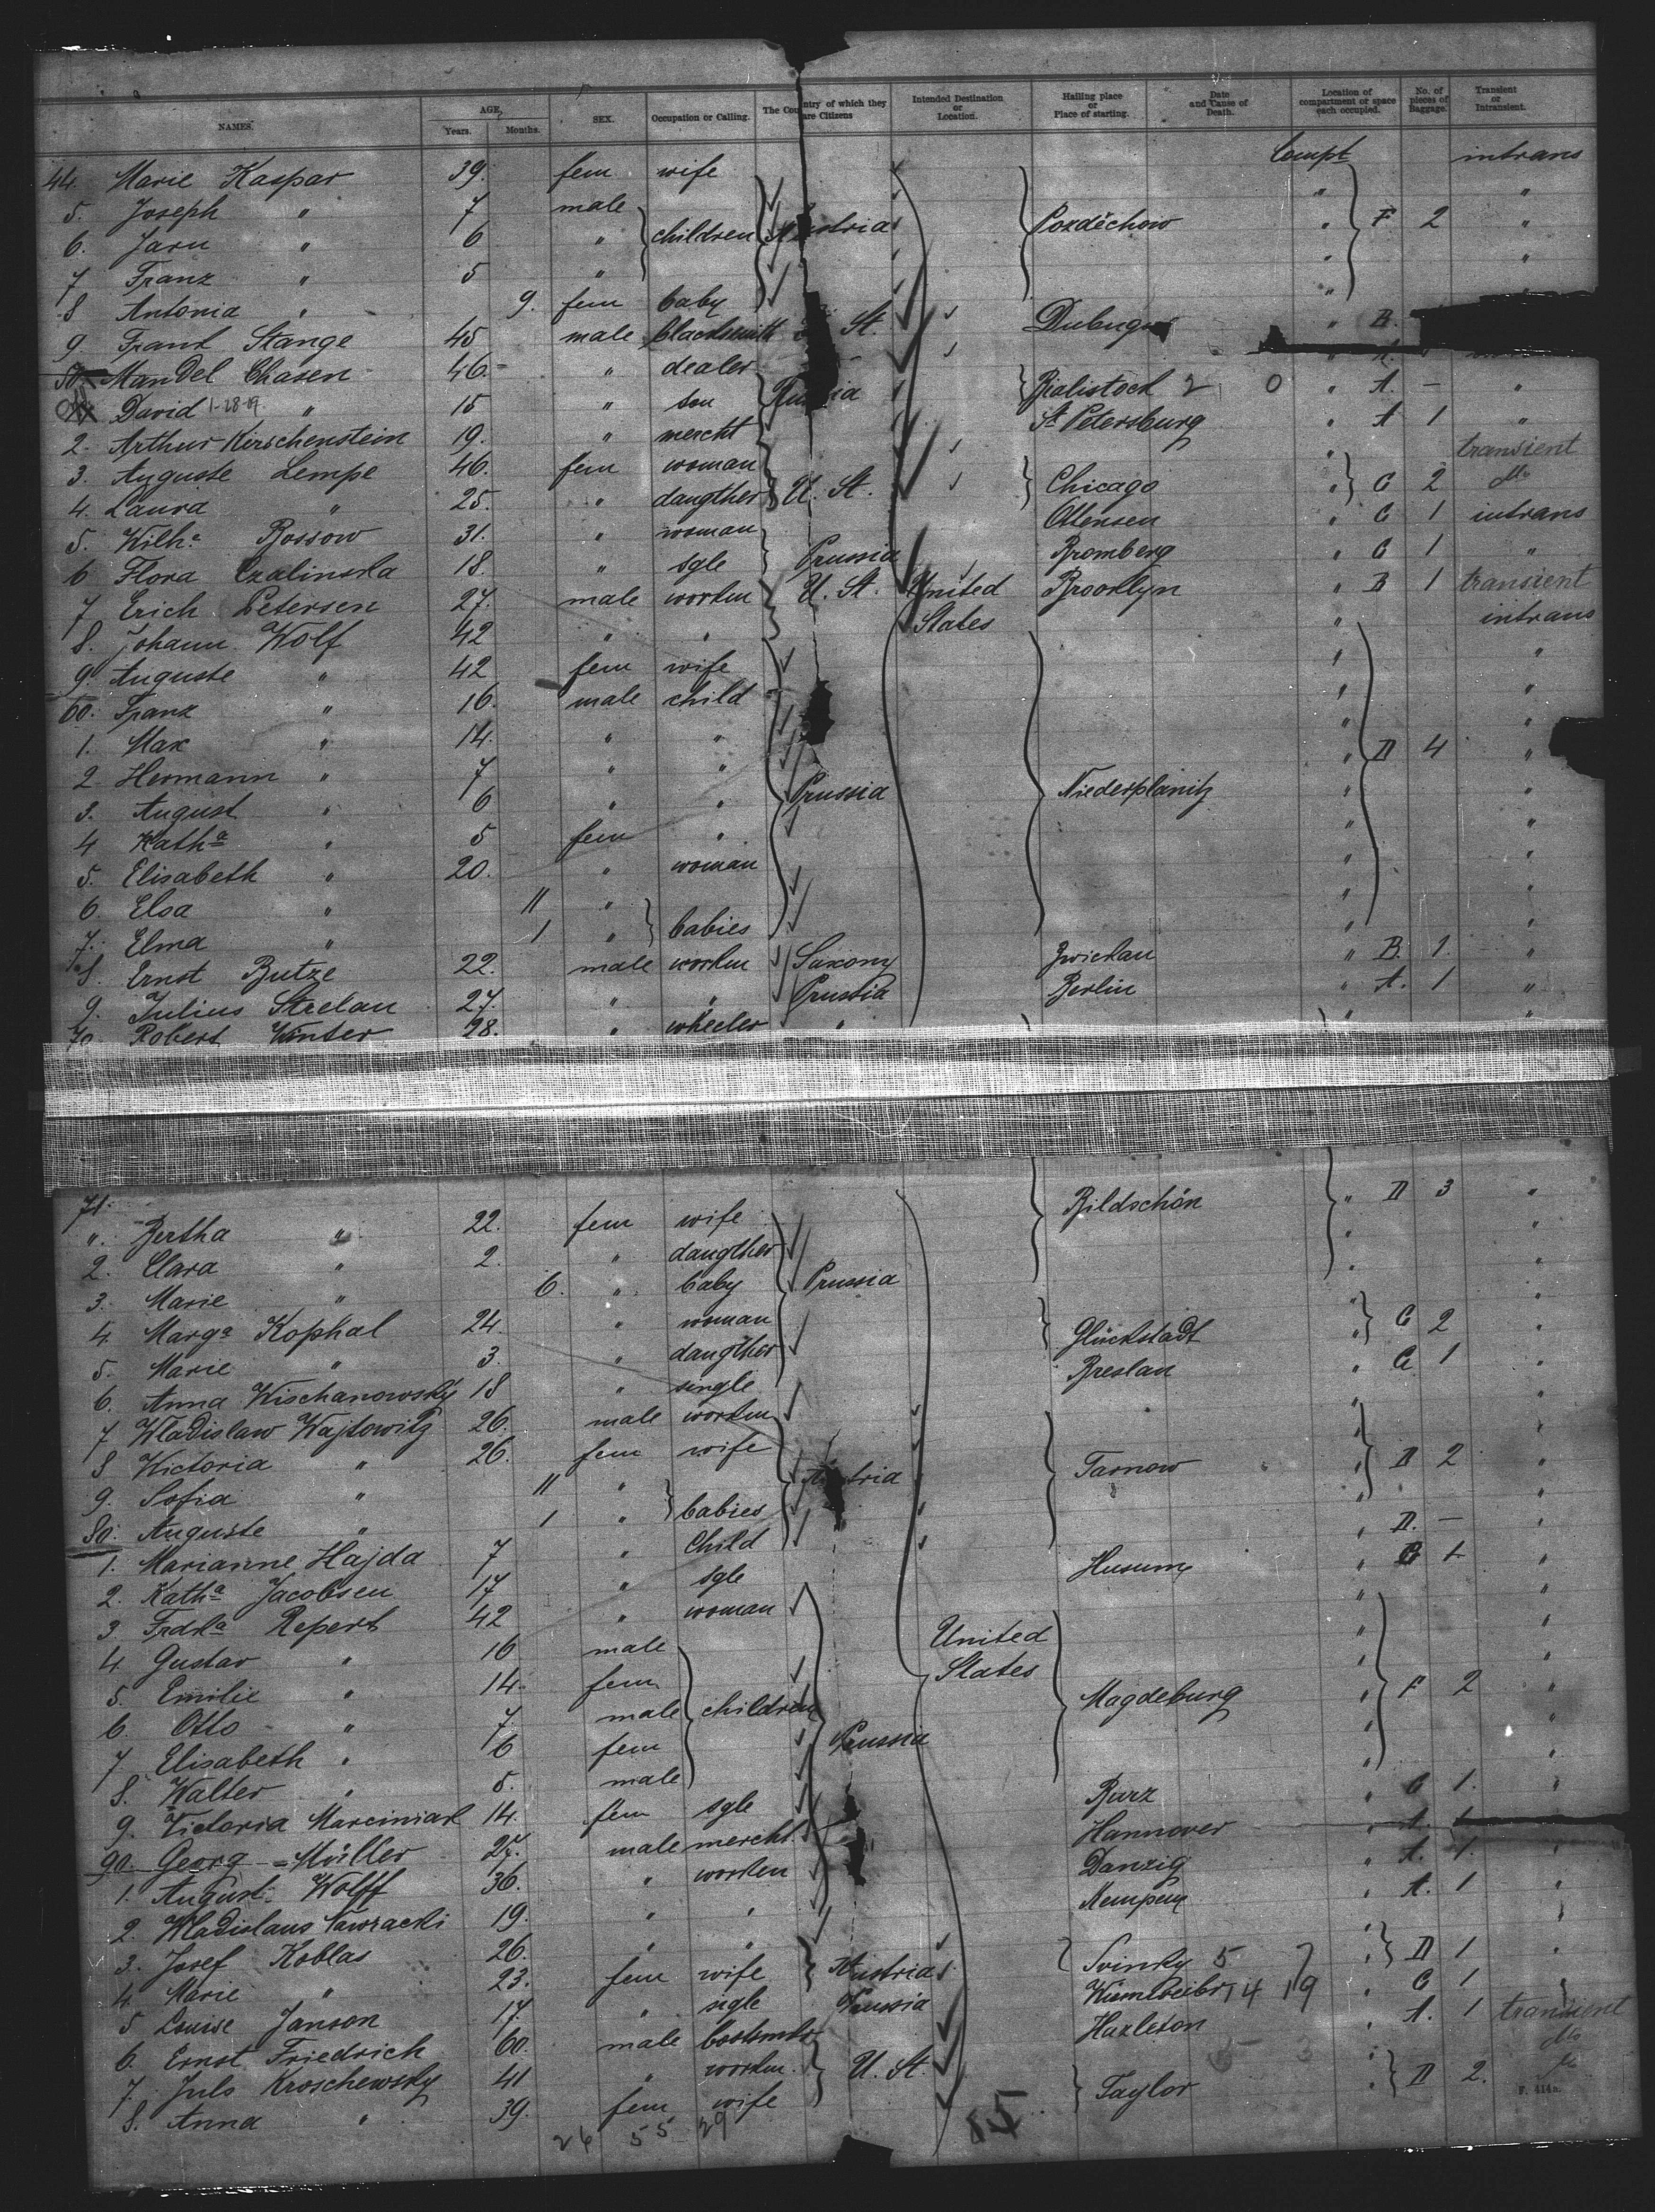 NAMES. AGE, Years. Months. SEX. Occupation or Calling. The Country of which they are Citizens Intended Destination or Location. Hailing place or Place of starting. Date and Cause of Death. Location of compartment or space each occupied. No. of pieces of Baggage. Transient or Intransient.
44. Marie Kaspar 39. fem wife Compt intrans
5. Joseph " 7 male " "
6. Jaru " 6 " children Austria Pozděchow " F 2 "
7 Franz " 5 " " "
8 Antonia " 9. fem baby " "
9 Frank Stange 45 male blacksmith St. Dubuque " B.
50 Mandel Chasen 46. " dealer " A.
David 1-28-19. " 15 " son Russia Bialistock 2 0 " A. — "
2. Arthur Kirschenstein 19. " mercht St Petersburg " A 1 "
3. Auguste Lempe 46. fem woman " transient
4. Laura " 25. " daugther U. St. Chicago " C 2 do
5. Wilha. Rossow 31. " woman Ottensen " C 1 intrans
6 Flora Czalinska 18. " sgle Prussia Bromberg " C 1 "
7 Erich Petersen 27. male workm U. St. United Brooklyn " B 1 transient
8. Johann Wolf 42 " " States " intrans
9. Auguste " 42 fem wife " "
60. Franz " 16. male child " "
1. Max " 14. " " "
2. Hermann " 7 " " " D 4 "
3. August " 6 " " Prussia Niederplanitz " "
4 Katha " 5 fem " " "
5. Elisabeth " 20. " woman " "
6. Elsa " 11 " " "
7. Elma " 1 " babies " "
8. Ernst Butze 22. male workm Saxony Zwickau " B. 1. "
9. Julius Strelau 27. " " Prussia Berlin " A. 1 "
70 Robert Winter 28. " wheeler " " "
71. Bildschön " D 3 "
". Bertha " 22. fem wife " "
2. Clara " 2. " daugther " "
3. Marie " 6. " baby Prussia " "
4. Marga Kophal 24. " woman Glückstadt " C 2 "
5. Marie " 3. " daugther Breslau " C 1 "
6. Anna Wischanowsky 18 " single "
7 Wladislaw Wajtowitz 26. male workm " "
8 Wictoria " 26. fem wife Tarnow " D 2 "
9. Sofia " 11 " Austria " "
80. Auguste " 1 " babies " D. — "
1. Marianne Hajda 7 " Child Husum " B 1 "
2. Katha Jacobsen 17 " sgle " "
3 Frdka Repert 42 " woman " "
4 Gustav " 16 male United " "
5. Emilie " 14. fem States Magdeburg " F 2 "
6. Otto " 7 male children " "
7 Elisabeth " 6 fem Prussia " "
8. Walter " 5. male C 1. "
9. Victoria Marciniak 14. fem sgle Hannover " A.
90. Georg Müller 27. male mercht Danzig " A. 1. "
1. August Wolff 36. " workm Kempen " A. 1 "
2. Wladislaus 19. " " "
3. Josef Koblas 26. " " Svinsky 5 " D 1 "
4. Marie " 23. fem wife Austria 14 19 " C 1
5 Louise Janson 17. " sigle Prussia Hazleton " A. 1 transient
6. Ernst Friedrich 60. male do
7. Juls Kroschewsky 41 " workm. U. St. Taylor " D 2. do
8. Anna " 39. fem wife
F. 414a.
26 55 29 85